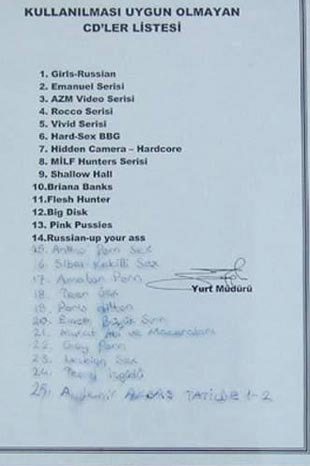 KULLANILMASI UYGUN OLMAYAN
CD'LER LİSTESİ
1. Girls-Russian
2. Emanuel Serisi
3. AZM Video Serisi
4. Rocco Serisi
5. Vivid Serisi
6. Hard-Sex BBG
7. Hidden Camera – Hardcore
8. MİLF Hunters Serisi
9. Shallow Hall
10.Briana Banks
11.Flesh Hunter
12.Big Disk
13. Pink Pussies
14.Russian-up your ass
15. Porn Sex
16. Sibel Kekilli Sex
17. Amatör Porn
Yurt Müdürü
18. Teen Sex
19. Paris Hilton
20. Büyük Sırrı
21. ve Maceraları
22. Gay Porn
23. Lezbiyen Sex
24.
25. Aydemir AKBAŞ TATİLDE 1-2